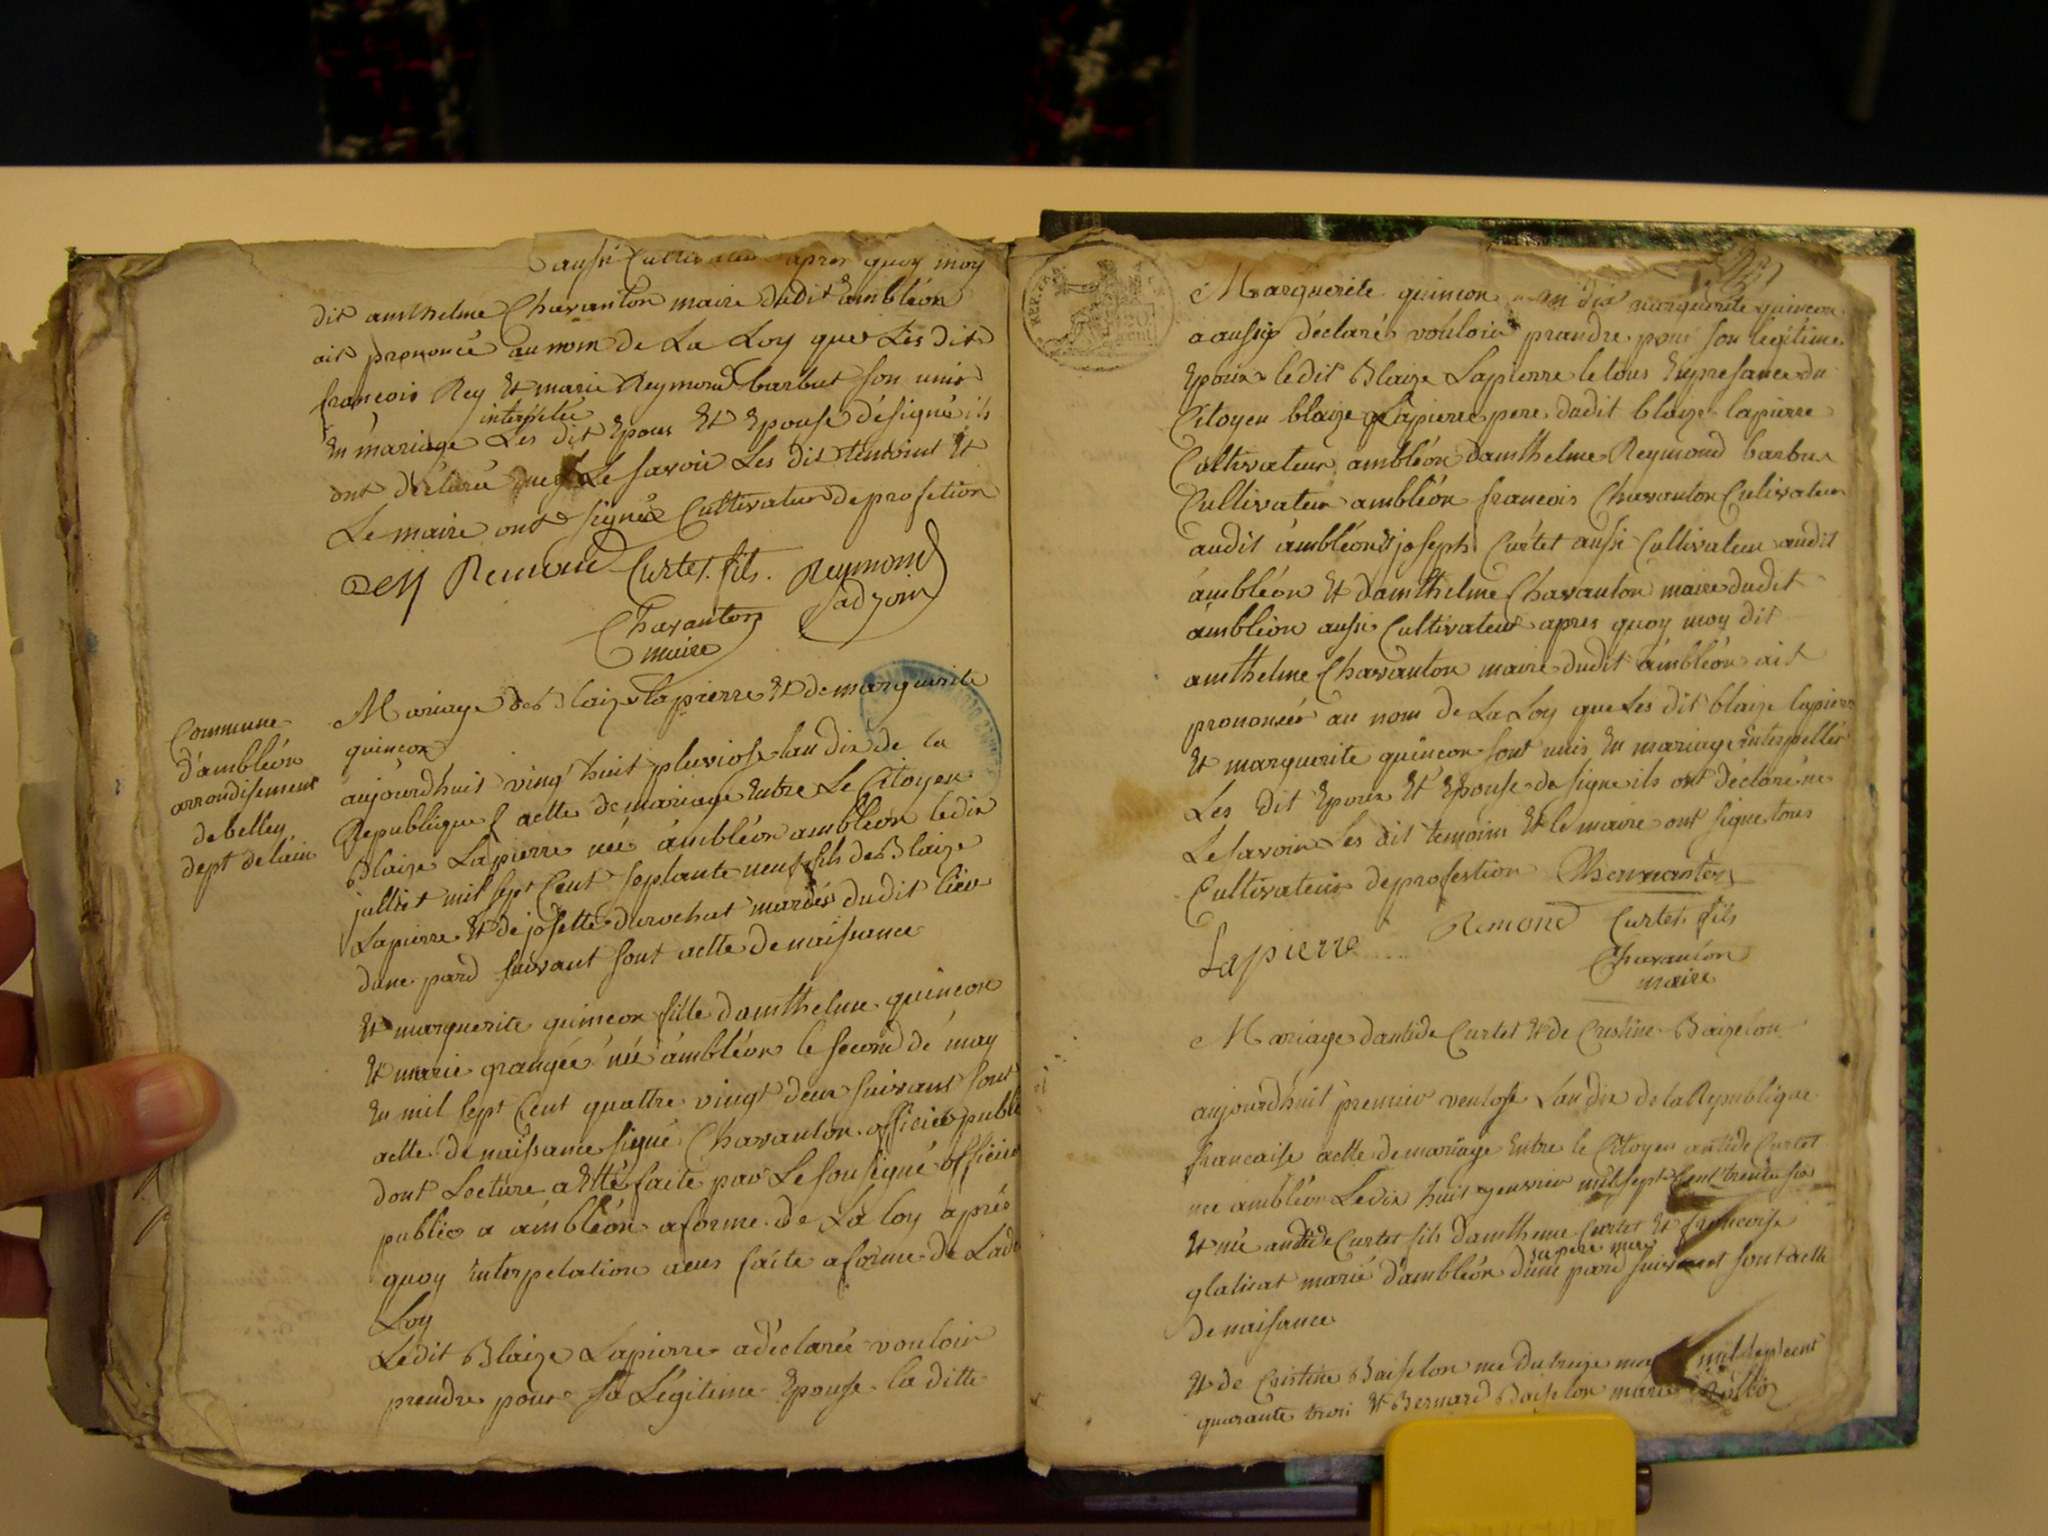 aussi Cultivateur apres quoy moy
dit amthelme Chavanton maire dudit ambléon
ait prononcé au nom de La Loy que Les dit
françois Rey Et marie Reymond barbut son unis
interpélée
En mariage Les dit Epoux Et Epouse désigné ils
ont déclaré ne Le savoir Les dit temoint Et
Le maire ont signéz Cultivateur de profetion
Rey Remond Curtet fils. Reymond
adjoint
Chavanton
maire
Mariage de Blaize lapierre Et de marguerite
quincon
Commune
d'ambléon
arrondisement
de belley
dept de lain
aujourdhuit vingt huit pluviose lan dix de la
Republique f actte de mariage Entre Le Citoyen
Blaize Lapierre née ámbléon ambléon le dix
julliet mil sept Cent septante neuf fils de Blaize
Lapierre Et de josette durochat mariés dudit liéu
dune pard suivant sont actte de naissance
Et marguerite quincon fille d'amthelme quincon
Et marie grangée née ámbléon le second dé may
En mil sept Cent quattre vingt deux suivant sont
actte de naissance signé Chavanton officier public
dont Lecture a Etté faite par Le sousigné officier
public a ámbléon a forme de La loy aprés
quoy interpelation a eus faite a forme de Ladi
Loy
Ledit Blaize Lapierre a déclarée vouloir
prendre pour sa Légitime Epouse la ditte
Marguerite quincon marguerite quincon
a aussiy déclarés vouloir prandre pour son legitime
Epoux ledit Blaize Lapierre le tous En presance du
Citoyen blaize Lapierre pere dudit blaize lapierre
Cultivateur ambléon damthelme Reymond barbut
Cultivateur ambléon francois Chavanton Cultivateur
audit ámbléon Et joseph Curtet aussi Cultivateur audit
ámbléon Et d'amthelme Chavanton maire dudit
ambléon aussi Cultivateur apres quoy moy dit
amthelme Chavanton maire dudit ámbléon ait
prononcér au nom de La Loy que Les dit blaize lapierre
Et marguerite quincon sont unis En mariage interpellér
Les dit Epoux Et Epouse designe ils ont déclaré ne
Le savoir Les dit temoins Et le maire ont signe tous
Cultivateur de profestion Chavanton
Lapierre Remond Curtet fils
Chavanton
maire
Mariage d'antide Curtet Et de Cristine Baizelon
aujourdhuit premier ventose Lan dix de la Republique
francaise actte de mariage Entre le Citoyen antide Curtet
née ambléon Le dix huit genvier mil sept Cent trente six
Et né antide Curtet fils d'amthelme Curtet Et francoise
su pere mere
glaticat marié d'ambléon d'une pard suivant sont actte
de naisance
Et de Cristine Baiselon née du treize mil sept cent
quarante trois Et Bernard Baiselon marie